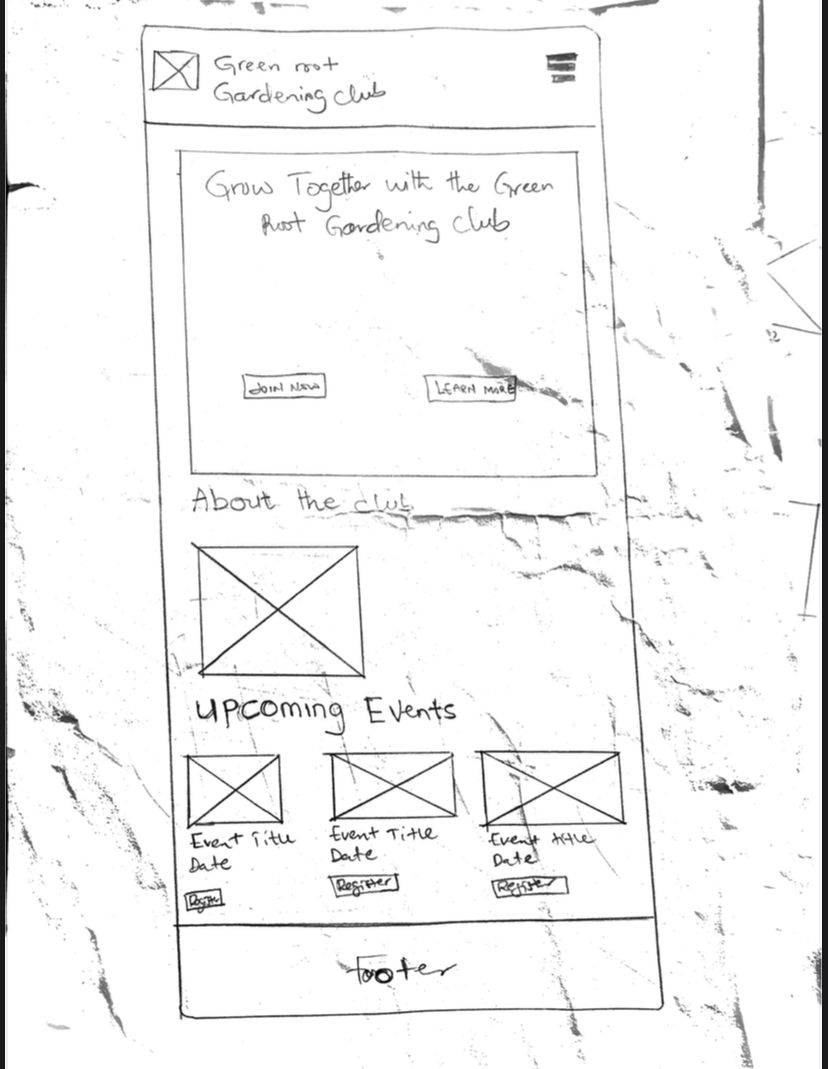 Green root
Gardening club
Grow Together with the Green
Root Gardening club
JOIN NOW
LEARN MORE
About the club
Upcoming Events
Event Title
Date
Register
Event Title
Date
Register
Event title
Date
Register
Footer